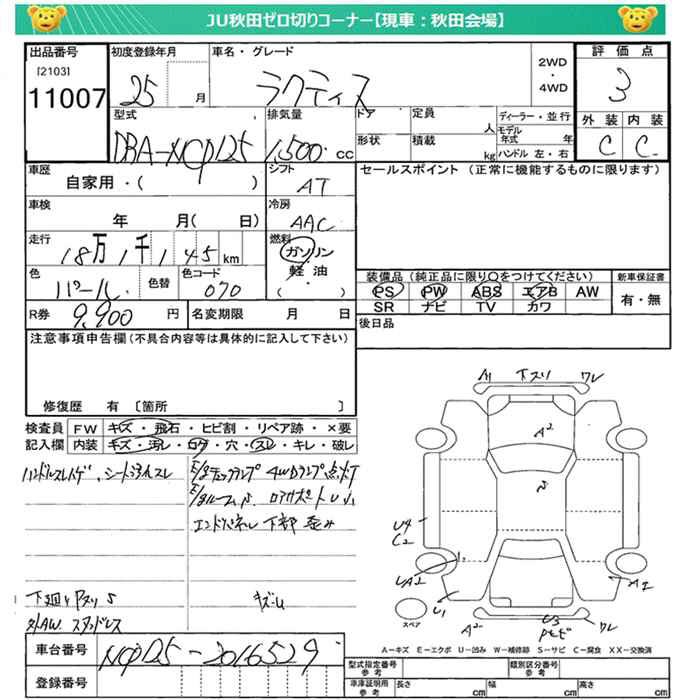 JU秋田ゼロ切りコーナー【現車：秋田会場】
出品番号 初度登録年月 車名・グレード 評価点
[2103]
11007 25 月 ラクティス 2WD・4WD 3
型式 排気量 ドア 定員 人 ディーラー・並行 外装 内装
DBA-NCP125 1,500 cc 形状 積載 kg モデル年式 年 ハンドル 左・右 C C
車歴 シフト セールスポイント（正常に機能するものに限ります）
自家用・（ ） AT
車検 冷房
年 月（ 日） AAC
走行 燃料
18万1千145km ガソリン・軽油
（ ・ ）
色 色替 色コード 装備品（純正品に限り○をつけてください） 新車保証書
パール 070 PS PW ABS エアB AW 有・無
SR ナビ TV カワ
R券 9,900 円 名変期限 月 日 後日品
注意事項申告欄（不具合内容等は具体的に記入して下さい）
修復歴 有 〔箇所 〕
検査員 FW キズ・飛石・ヒビ割・リペア跡・×要
記入欄 内装 キズ・汚レ・コゲ・穴・スレ・キレ・破レ
ハンドルスレハゲ、シート汚れスレ
4WDランプ点灯
エンドパネル下部歪み
下廻りサビS
外AW スタッドレス
キズU
A1 下スリ ワレ
A2
S
U4
C2
UA2
U1
A2
U3
ワレ
A2
スペア
A－キズ E－エクボ U－凹み W－補修跡 S－サビ C－腐食 XX－交換済
車台番号 NCP125-2016529
登録番号
型式指定番号 参考 類別区分番号 参考
車庫証明用 参考 長さ cm 幅 cm 高さ cm